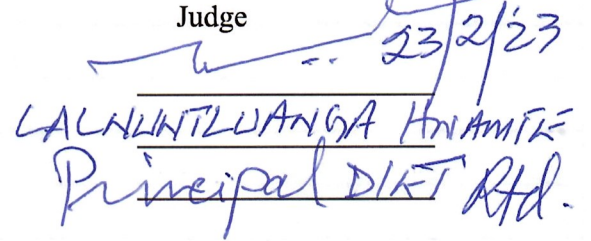 Judge
23/2/23
LALNUNTLUANGA HNAMTE
Principal DIET Rtd.